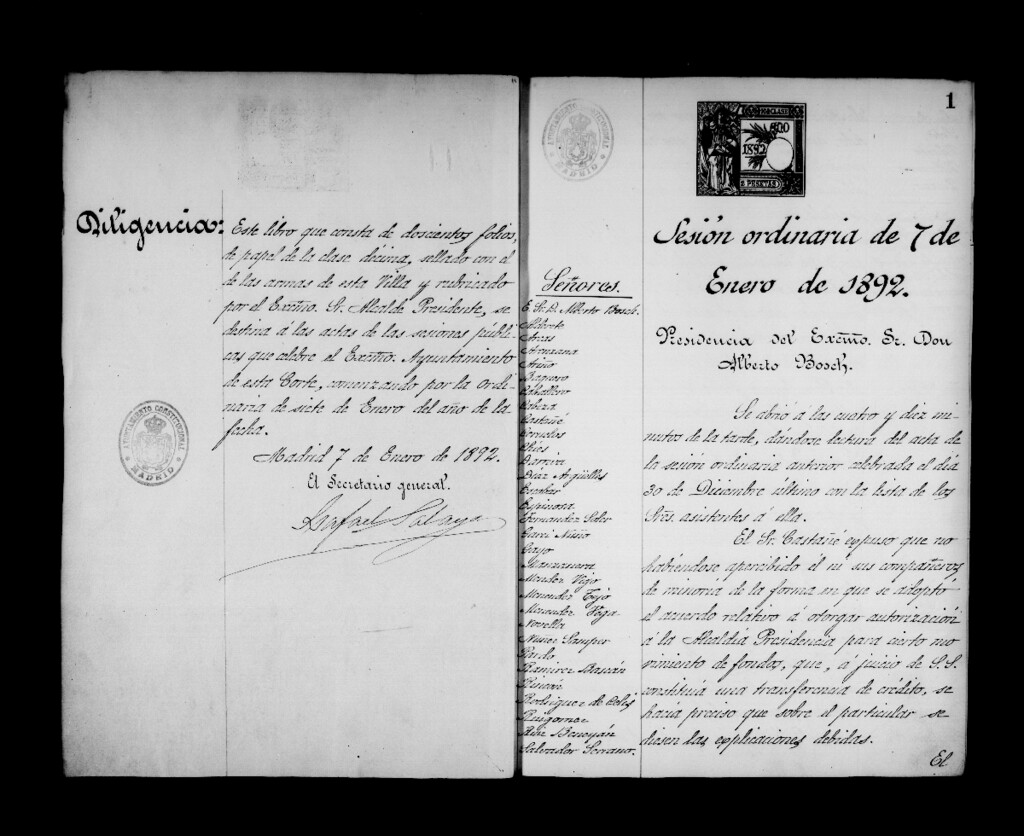 Diligencia:
Este libro que consta de doscientos folios,
de papel de la clase décima, sellado con el
de las armas de esta Villa y rubricado
por el Excmo. Sr. Alcalde Presidente, se
destina á las actas de las sesiones públi-
cas que celebre el Excmo. Ayuntamiento
de esta Corte, comenzando por la ordi-
naria de siete de Enero del año de la
fecha.
Madrid 7 de Enero de 1892.
El Secretario general.
Rafael Salaya
AYUNTAMIENTO CONSTITUCIONAL
MADRID
AYUNTAMIENTO CONSTITUCIONAL
MADRID
1892
5 PESETAS
1
Sesión ordinaria de 7 de
Enero de 1892.
Presidencia del Excmo. Sr. Don
Alberto Bosch.
Señores.
E. Sr. D. Alberto Bosch.
Arcas
Ariño
Caballero
Cabeza
Castañé
Chies
Díaz Argüelles
Escobar
Espinosa
Fernandez Soler
Garci Nuño
Gayo
Manzanera
Mendez Vigo
Menendez Tejo
Menendez Vega
Novella
Nuñez Samper
Pardo
Ramirez Bascán
Rincón
Rodriguez de Celis
Ruigomez
Ruiz Benoyán
Salvador Serrano.
Se abrió á las cuatro y diez mi-
nutos de la tarde, dándose lectura del acta de
la sesión ordinaria anterior celebrada el día
30 de Diciembre último con la lista de los
Sres. asistentes á ella.
El Sr. Castañé expuso que no
habiéndose apercibido él ni sus compañeros
de minoria de la forma en que se adoptó
el acuerdo relativo á otorgar autorización
á la Alcaldía Presidencia para cierto mo-
vimiento de fondos, que, á juicio de S.S.
constituía una transferencia de crédito, se
hacía preciso que sobre el particular se
diesen las explicaciones debidas.
El